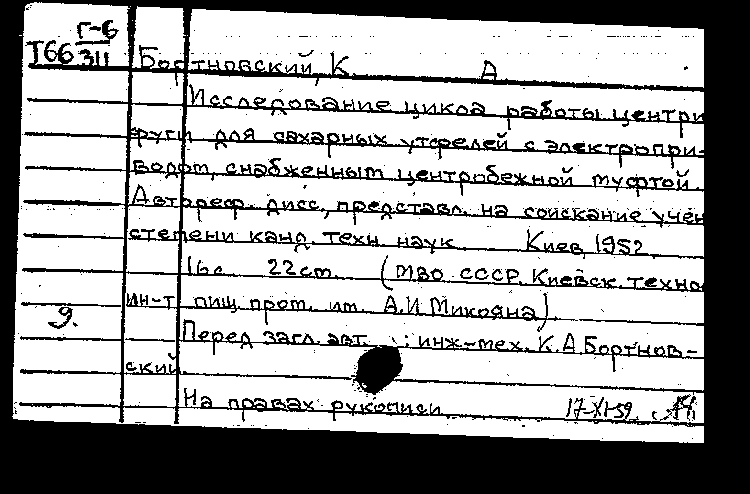 Г-6
Т66 311
Бортновский, К. А
Исследование цикла работы центри
фуги для сахарных утфелей с электропри-
водом, снабженным центробежной муфтой.
Автореф. дисс., представл. на соискание учен
степени канд. техн. наук. Киев, 1952.
16 с. 22 см. (МВО СССР. Киевск. техно
ин-т пищ. пром. им. А.И. Микояна).
9.
Перед загл. авт.: инж-мех. К.А. Бортнов-
ский.
На правах рукописи
17-XI-59.